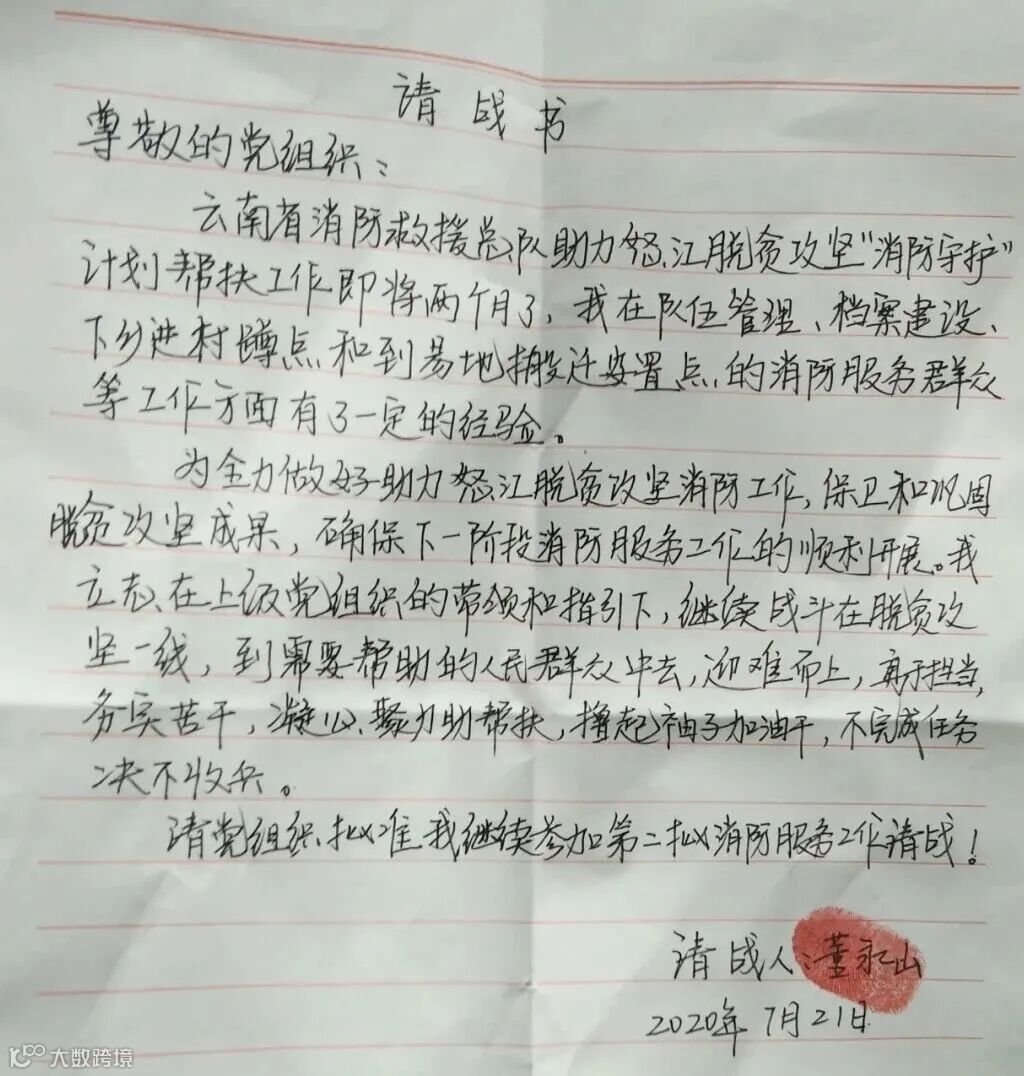 请战书
尊敬的党组织：
云南省消防救援总队助力怒江脱贫攻坚“消防守护”
计划帮扶工作即将两个月了，我在队伍管理、档案建设、
下乡进村蹲点和到易地搬迁安置点的消防服务群众
等工作方面有了一定的经验。
为全力做好助力怒江脱贫攻坚消防工作，保卫和巩固
脱贫攻坚成果，确保下一阶段消防服务工作的顺利开展。我
立志在上级党组织的带领和指引下，继续战斗在脱贫攻
坚一线，到需要帮助的人民群众中去，迎难而上，勇于担当，
务实苦干，凝心聚力助帮扶，撸起袖子加油干，不完成任务
决不收兵。
请党组织批准我继续参加第二批消防服务工作请战！
请战人：董永山
2020年7月21日
大数跨境